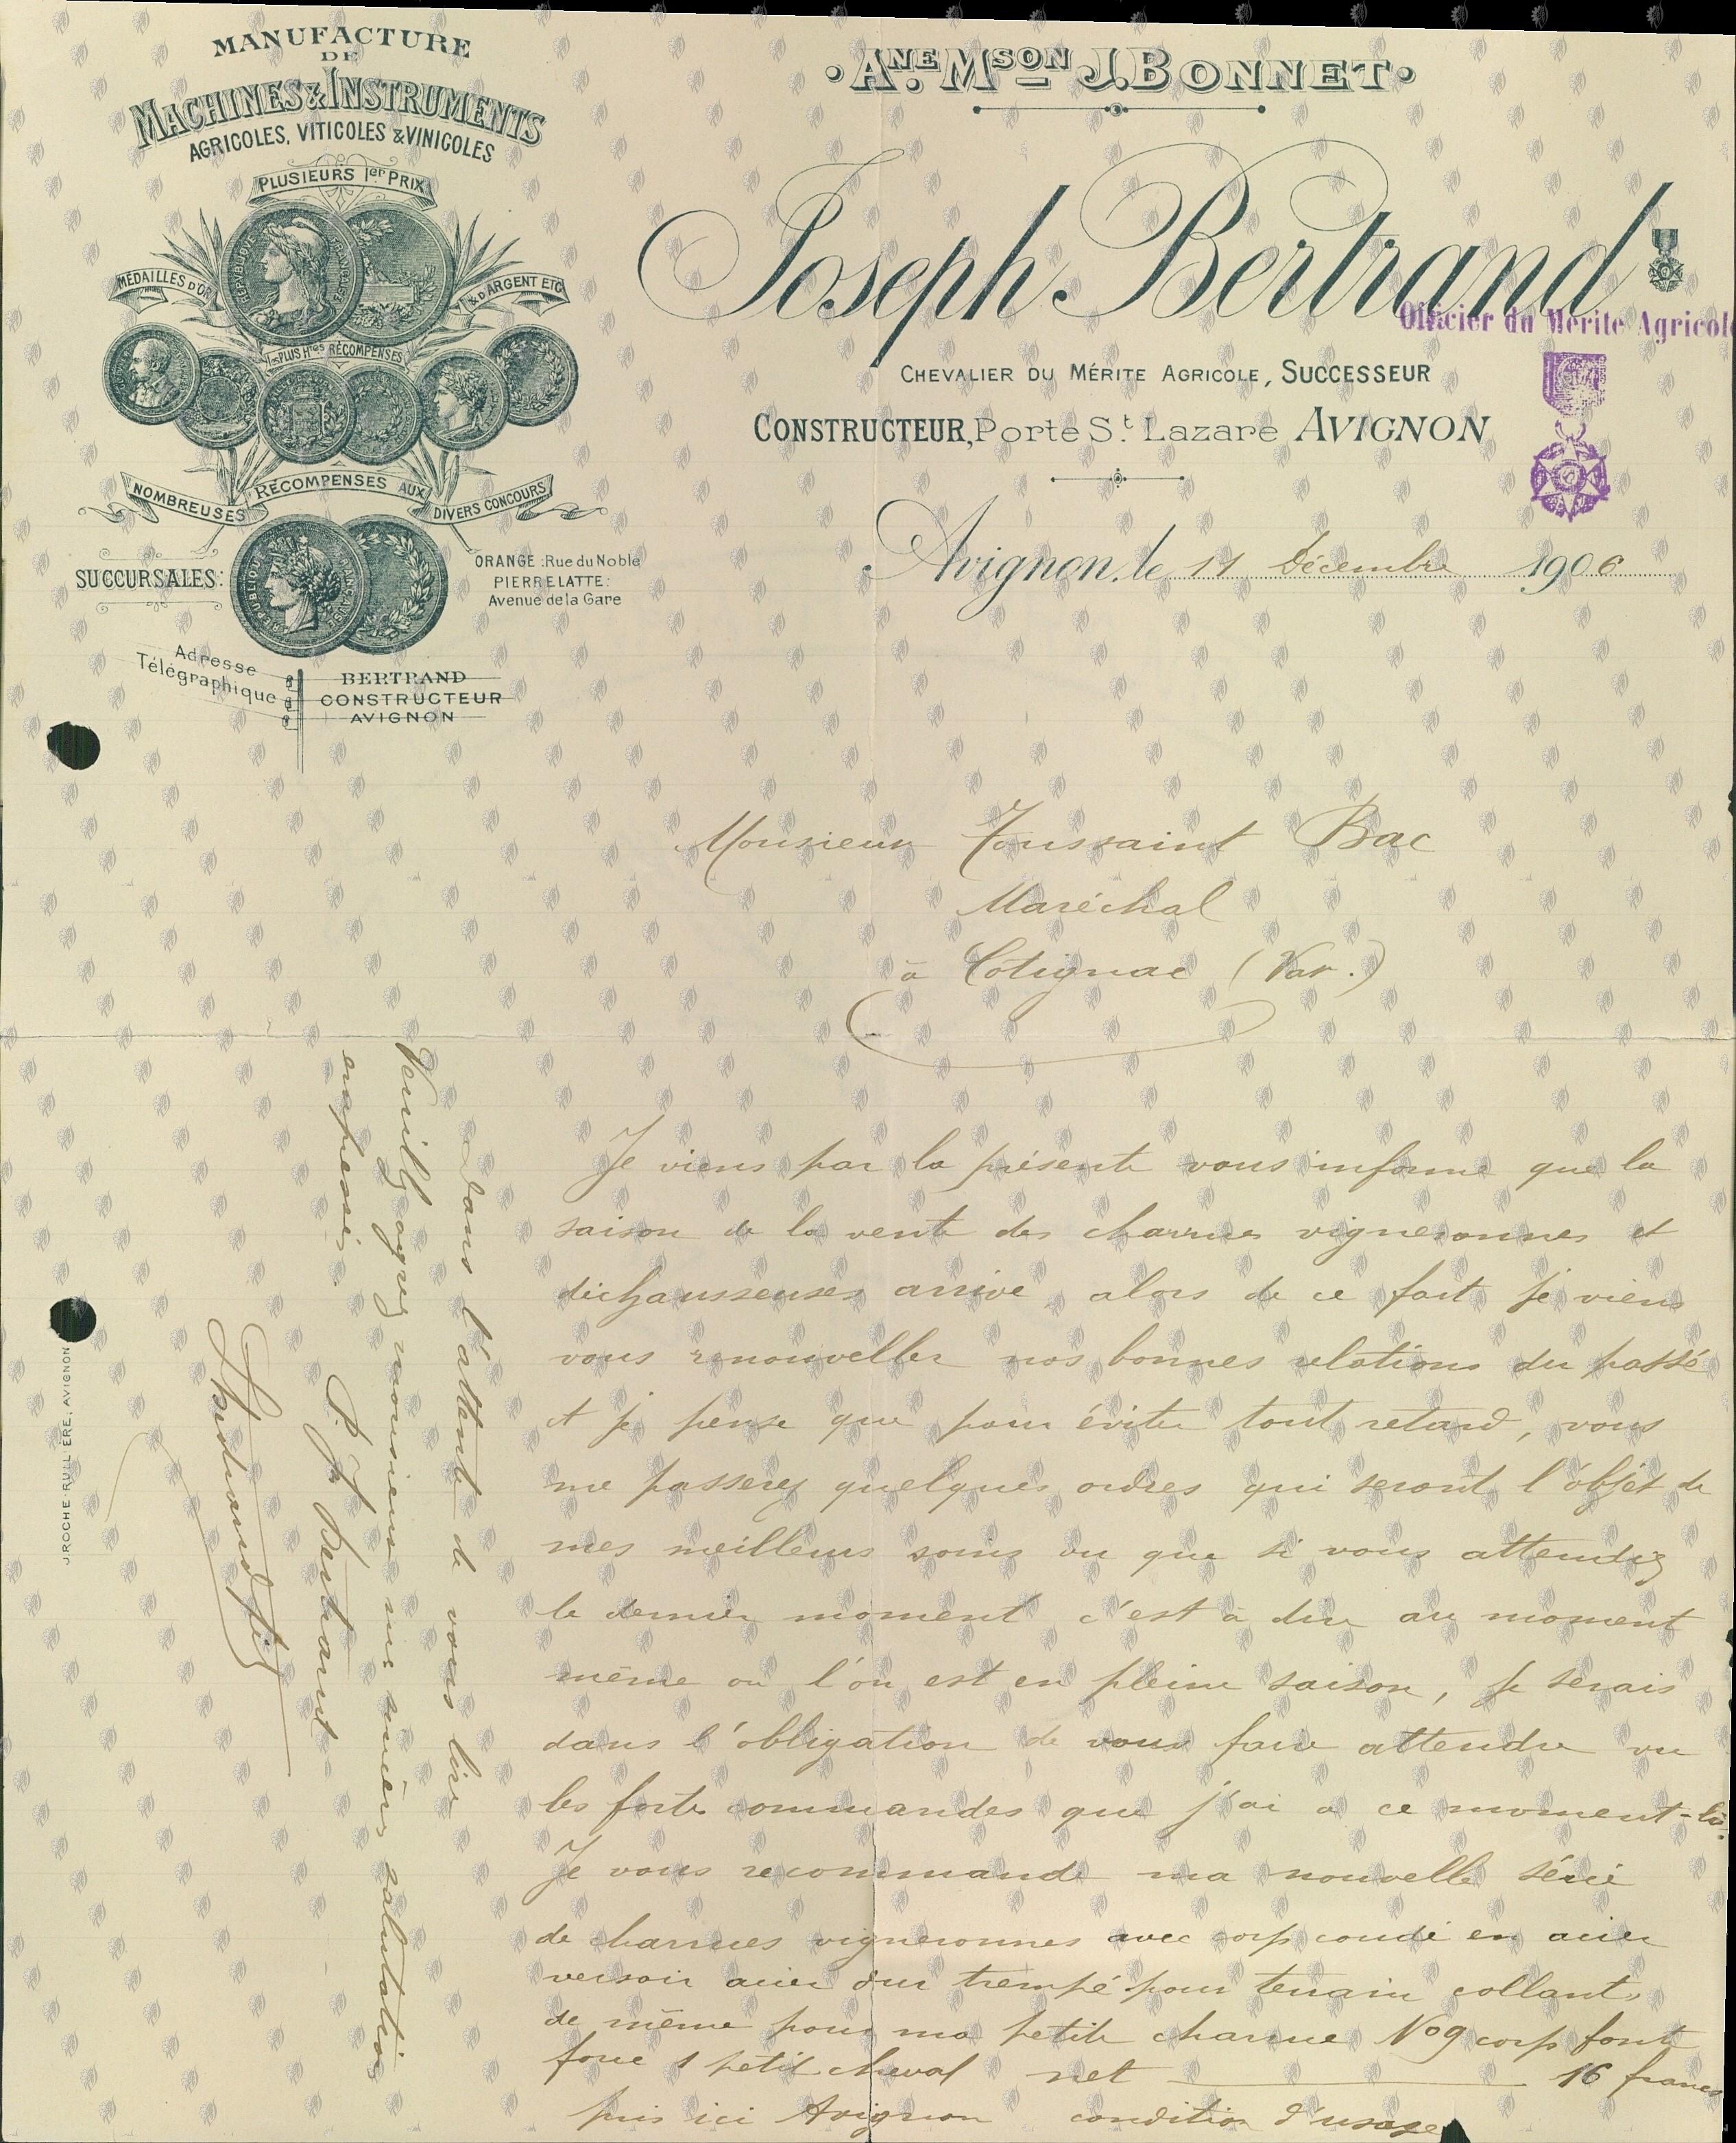 MANUFACTURE
DE
MACHINES & INSTRUMENTS
AGRICOLES, VITICOLES & VINICOLES
PLUSIEURS 1er PRIX
REPUBLIQUE FRANÇAISE
MÉDAILLES D'OR
& D'ARGENT ETC
PLUS Htes RÉCOMPENSES
NOMBREUSES RÉCOMPENSES AUX DIVERS CONCOURS
REPUBLIQUE FRANÇAISE
SUCCURSALES:
ORANGE: Rue du Noble
PIERRELATTE:
Avenue de la Gare
Adresse
Télégraphique
BERTRAND
CONSTRUCTEUR
AVIGNON
ANE. MSON J. BONNET
Joseph Bertrand
Officier du Mérite Agricol
CHEVALIER DU MÉRITE AGRICOLE, SUCCESSEUR
CONSTRUCTEUR, Porte St. Lazare AVIGNON
Avignon, le 11 Décembre 1906
Monsieur Toussaint Bac
Maréchal
à Cotignac (Var.)
Je viens par la présente vous informe que la
saison de la vente des charrues vigneronnes et
déchausseuses arrive, alors de ce fait je viens
vous renouveller nos bonnes relations du passé
et je pense que pour éviter tout retard, vous
me passerez quelques ordres qui seront l'objet de
mes meilleurs soins vu que si vous attendiez
le dernier moment c'est à dire au moment
même ou l'on est en pleine saison, je serais
dans l'obligation de vous faire attendre vu
les fortes commandes que j'ai a ce moment-là.
Je vous recommande ma nouvelle série
de charrues vigneronnes avec corp coudé en acier
versoir acier dur trempé pour terrain collant,
de même pour ma petite charrue No 9 corp fonte
force 1 petit cheval net 16 francs
pris ici Avignon condition d'usage
Dans l'attente de vous lire
Veuillez agréez monsieur mes sincères salutations
empressées.
P. Jh Bertrand
Bertrand fils
J. ROCHE-RULLIÈRE, AVIGNON